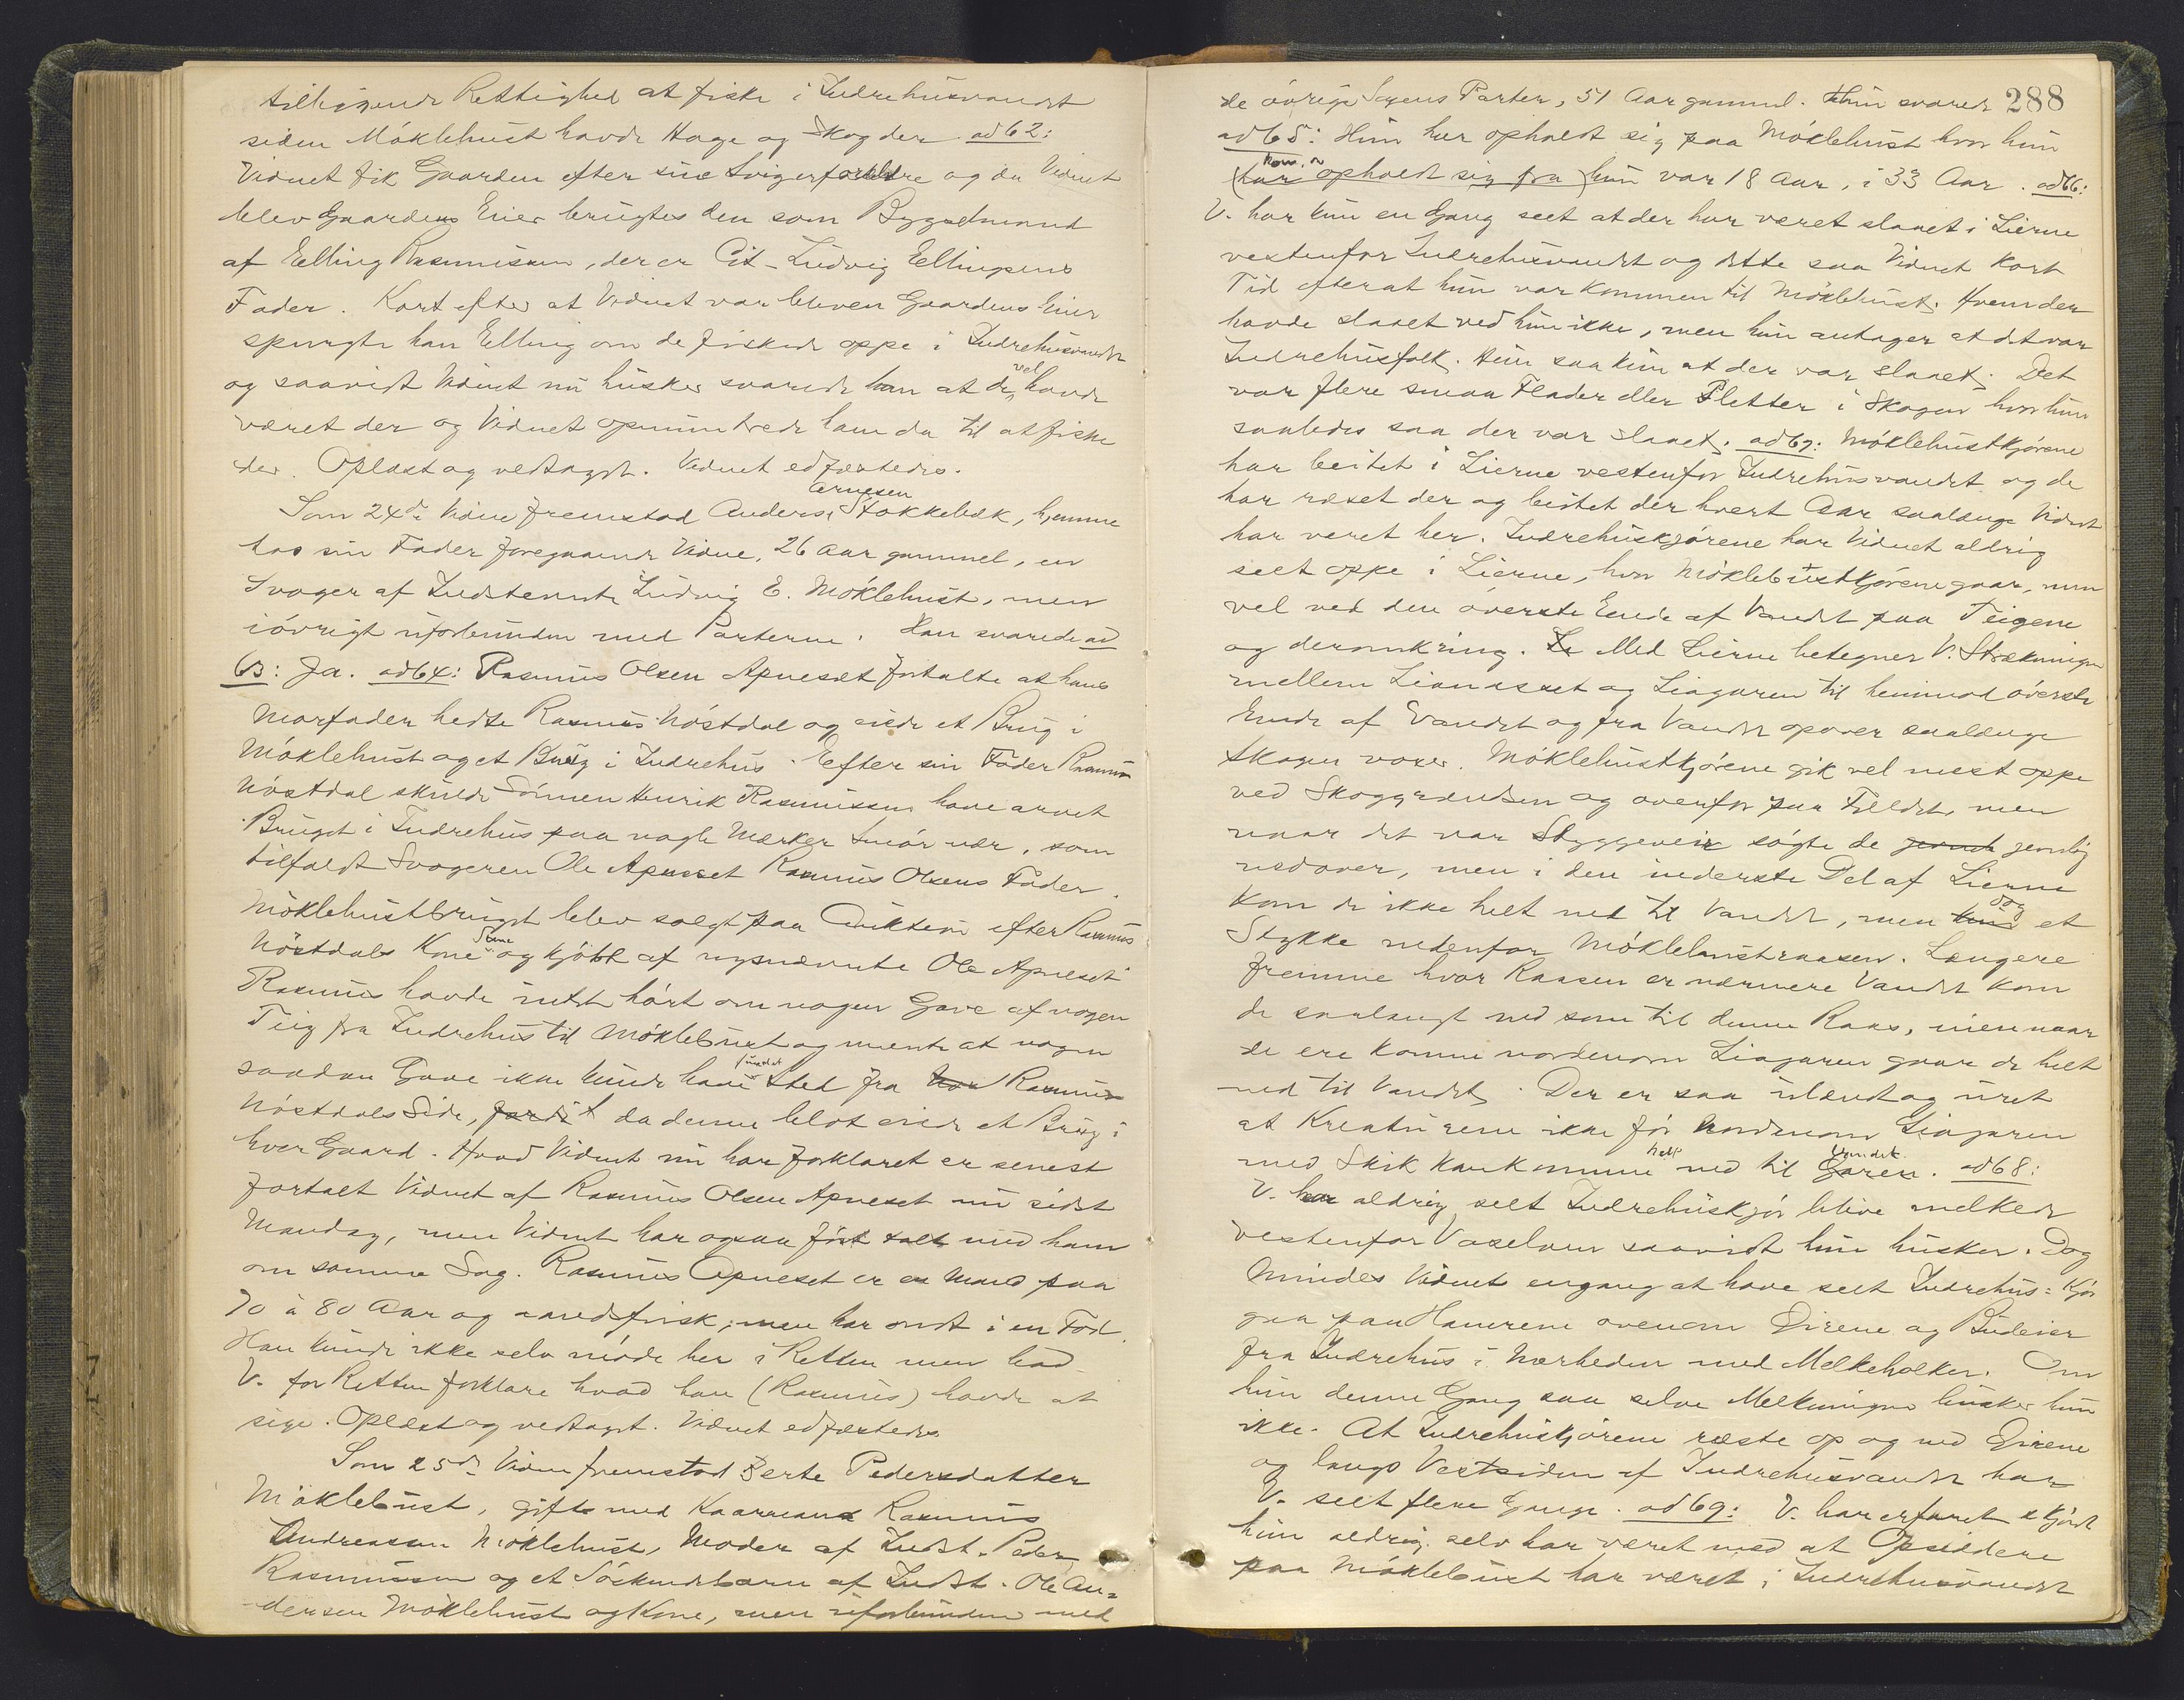 tilhørende Rettighed at fiske i Indrehusvandet
siden Møklebust havde Hage og Skog der. ad 62:
Vidnet fik Gaarden efter sine Svigerforældre og da Vidnet
blev Gaardens Eier brugtes den som Bygselmand
af Elling Rasmussen, der er Cit. Ludvig Ellingsens
Fader. Kort efter at Vidnet var bleven Gaardens Eier
spurgte han Elling om de fiskede oppe i Indrehusvandet
og saavidt Vidnet nu husker svarede han at de vel havde
været der og Vidnet opmuntrede ham da til at fiske
der. Oplæst og vedtaget. Vidnet edfæstedes.
Som 24de Vidne fremstod Anders Arnesen Stokkebæk, hjemme
hos sin Fader foregaaende Vidne, 26 Aar gammel, en
Svoger af Indstevnte Ludvig E. Møklebust, men
iøvrigt uforbunden med Parterne. Han svarede ad
63: Ja. ad 64: Rasmus Olsen Apneset fortalte at hans
Morfader hedte Rasmus Nøstdal og eiede et Brug i
Møklebust og et Brug i Indrehus. Efter sin Fader Rasmus
Nøstdal skulde Sønnen Henrik Rasmussen have arvet
Bruget i Indrehus paa nogle Mærker Smør nær, som
tilfaldt Svogeren Ole Apneset Rasmus Olsens Fader.
Møklebustbruget blev solgt paa Auktion efter Rasmus
Nøstdals Kone og kjøbt af nysnævnte Ole Apneset
Rasmus havde intet hørt om nogen Gave af nogen
Teig fra Indrehus til Møklebust og mente at nogen
saadan Gave ikke kunde have fundet Sted fra Rasmus
Nøstdals Side, da denne blot eiede et Brug i
hver Gaard. Hvad Vidnet nu har forklaret er senest
fortalt Vidnet af Rasmus Olsen Apneset nu sidst
Mandag, men Vidnet har ogsaa før talt med ham
om samme Sag. Rasmus Apneset er en Mand paa
70 à 80 Aar og aandsfrisk, men har ondt i en Fod.
Han kunde ikke selv møde her i Retten men bad
V. for Retten forklare hvad han (Rasmus) havde at
sige. Oplæst og vedtaget. Vidnet edfæstedes.
Som 25de Vidne fremstod Berte Pedersdatter
Møklebust, gift med Kaarmand Rasmus
Andreassen Møklebust, Moder af Indst. Peder
Rasmussen og et Søskendebarn af Indst. Ole An=
dersen Møklebust og Kone, men uforbunden med
288
de øvrige Sagens Parter, 51 Aar gammel. Hun svarer
ad 65: Hun har opholdt sig paa Møklebust hvor hun
kom, opholdt sig fra hun var 18 Aar, i 33 Aar. ad 66:
V. har kun en Gang seet at der har været slaaet i Lierne
vestenfor Indrehusvandet og dette saa Vidnet kort
Tid efterat hun var kommen til Møklebust. Hvem der
havde slaaet ved hun ikke, men hun antager at det var
Indrehusfolk. Hun saa kun at der var slaaet. Det
var flere smaa Flader eller Fletter i Skogen hvor hun
saaledes saa der var slaaet. ad 67: Møklebustkjørene
har beitet i Lierne vestenfor Indrehusvandet og de
har ræset der og beitet der hvert Aar saalænge Vidnet
har været her. Indrehuskjørene har Vidnet aldrig
seet oppe i Lierne, hvor Møklebustkjørene gaar, men
vel ved den øverste Ende af Vandet paa Teigene
og deromkring. Med Lierne betegner V. Strækningen
mellem Lianæsset og Liagaren til henimod øverste
Ende af Vandet og fra Vandet opover saalænge
Skogen voxer. Møklebustkjørene gik vel mest oppe
ved Skoggrændsen og ovenfor paa Fjeldet, men
naar det var Styggeveir søgte de jevnlig
nedover, men i den inderste Del af Lierne
kom de ikke helt ned til Vandet, men dog et
Stykke nedenfor Møklebustraasen. Længere
fremme hvor Raasen er nærmere Vandet kom
de saalangt ned som til denne Raas, men naar
de ere komne nordenom Liagaren gaar de helt
ned til Vandet. Der er saa ulændt og uret
at Kreaturene ikke før nordenom Liagaren
med Skik kan komme helt ned til Vandet. ad 68:
V. har aldrig seet Indrehuskjør blive melkede
vestenfor Vaselven saavidt hun husker. Dog
mindes Vidnet engang at have seet Indrehus=kjør
gaa paa Hamrene ovenom Eirene og Budeier
fra Indrehus i Nærheden med Melkeholker. Om
hun denne Gang saa selve Melkningen husker hun
ikke. At Indrehuskjørene ræste op og ned Eirene
og langs Vestsiden af Indrehusvandet har
V. seet flere Gange. ad 69: V. har erfaret skjønt
hun aldrig selv har været med at Opsiddere
paa Møklebust har været i Indrehusvandet